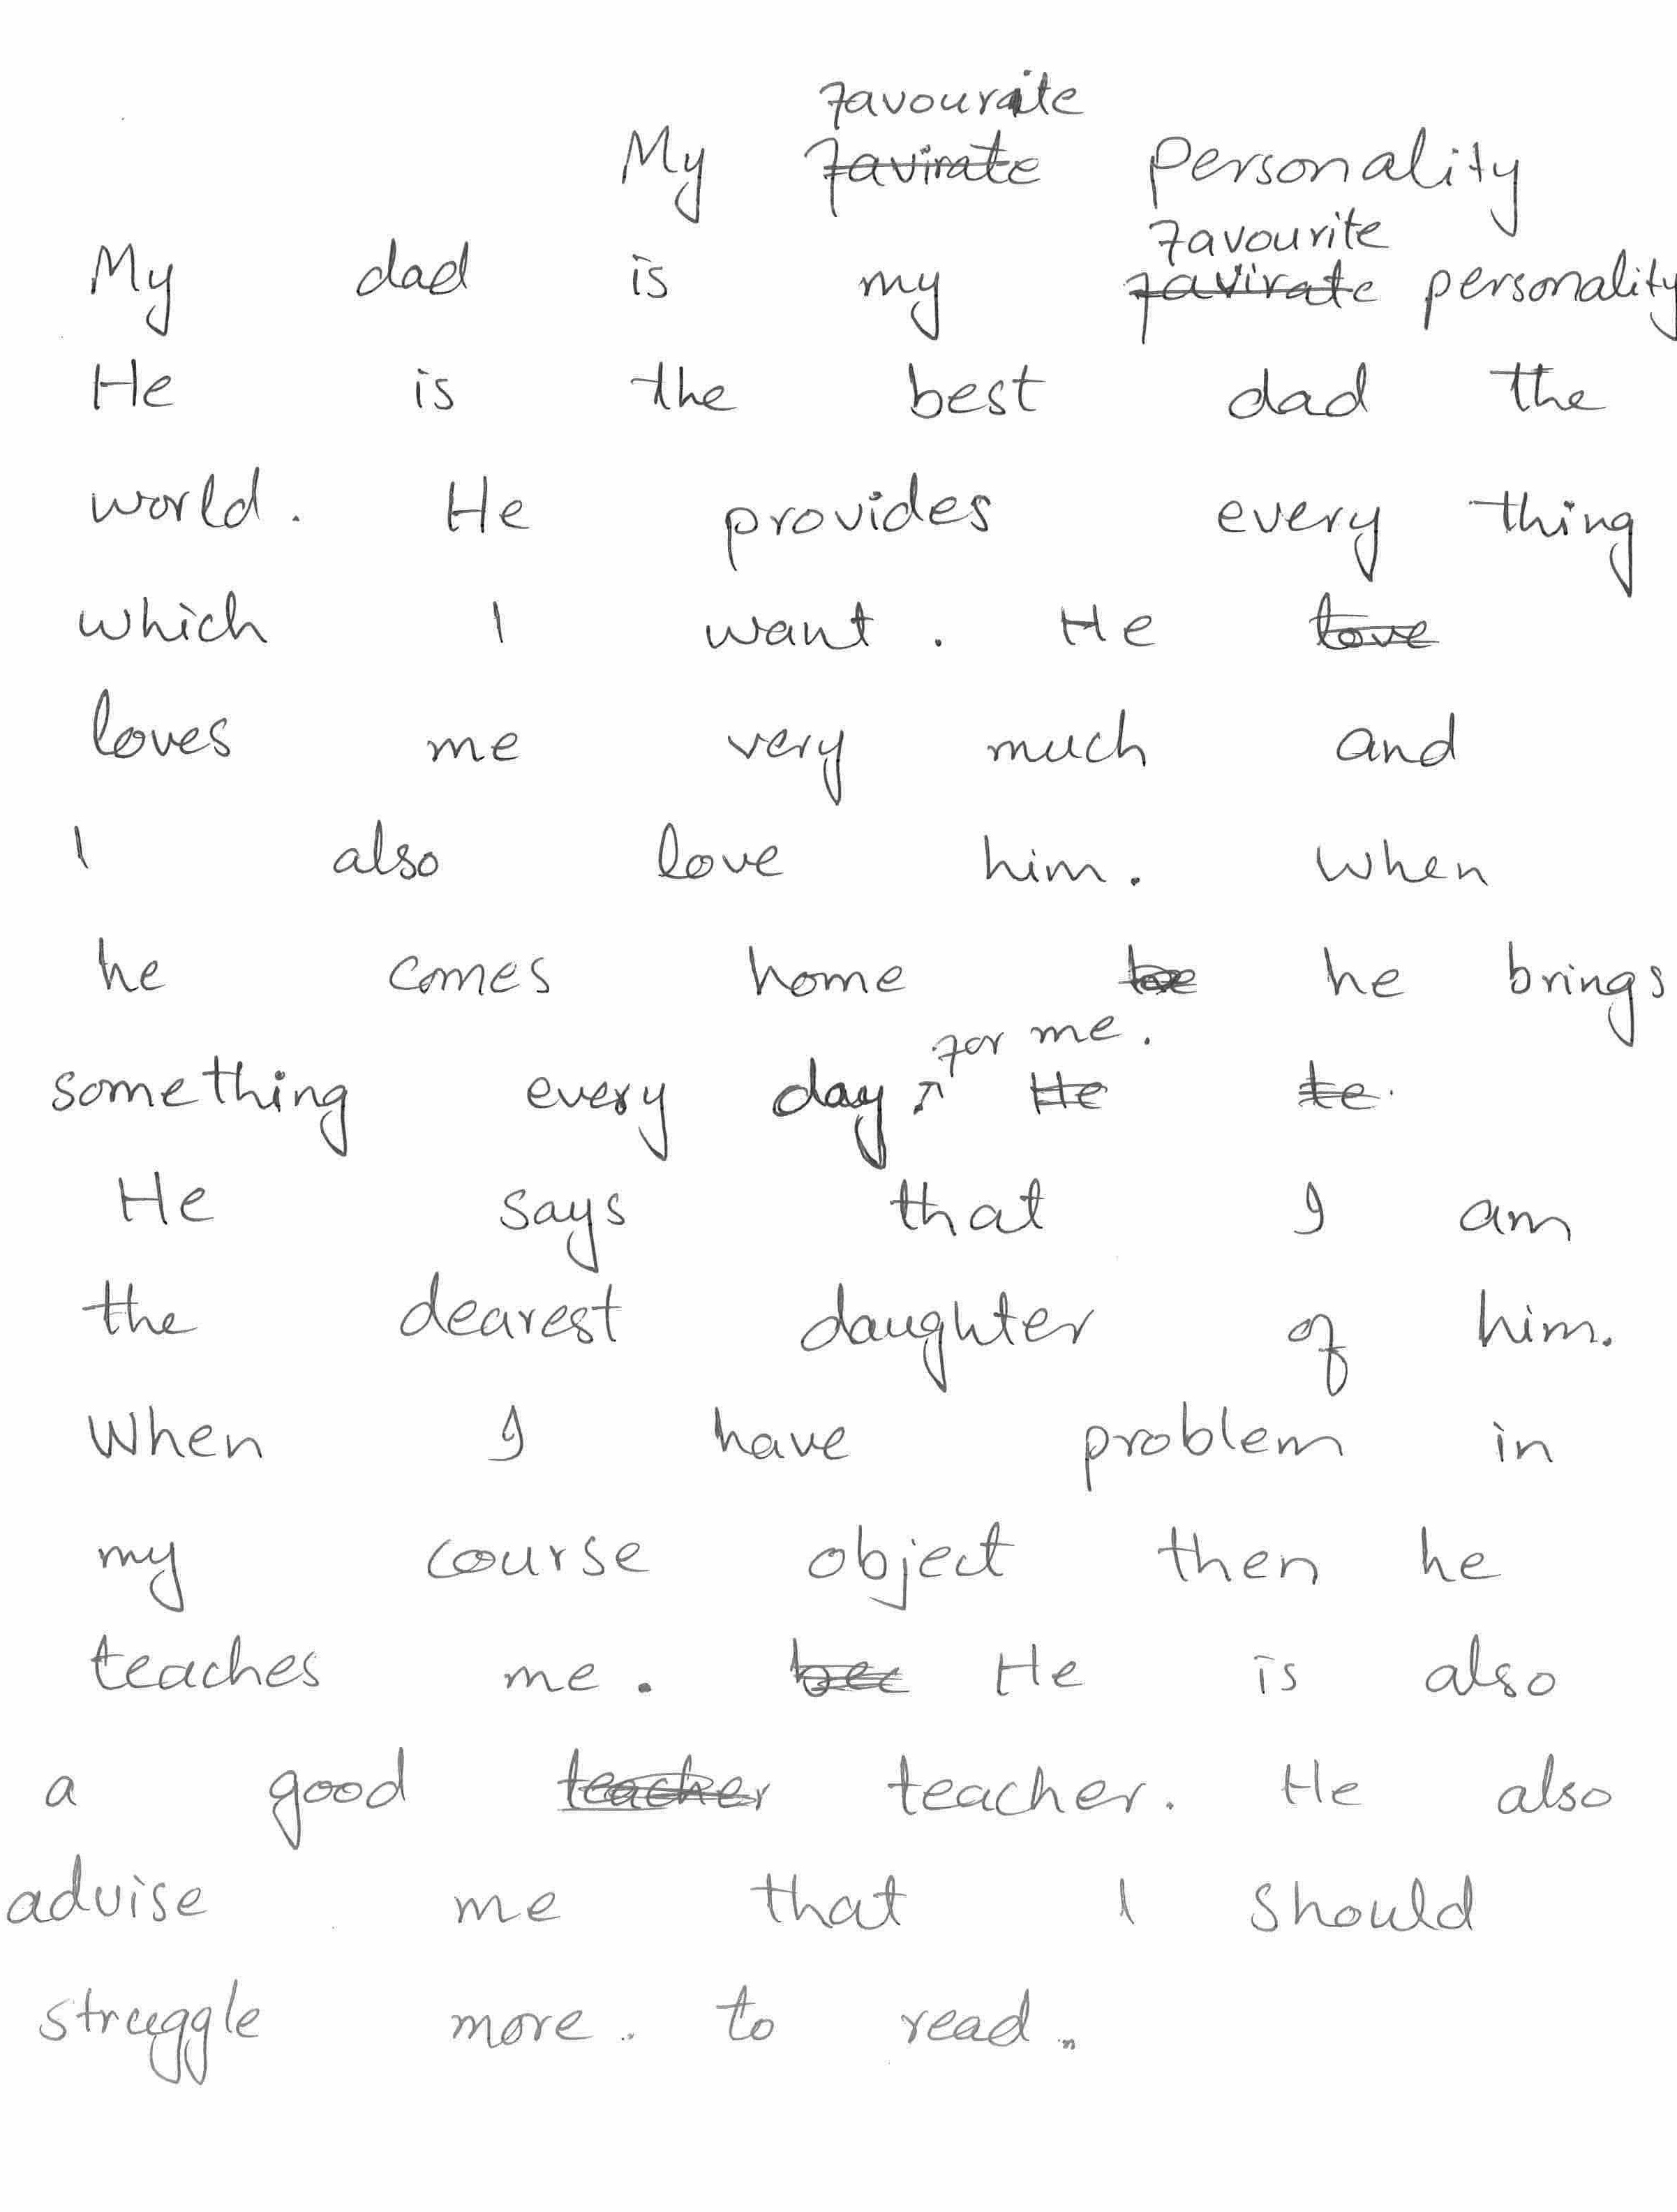 favourite
My favirate personality
favourite
My dad is my favirate personality
He is the best dad the
world. He provides every thing
which I want. He love
loves me very much and
I also love him. when
he comes home he brings
for me.
something every day He te.
He says that I am
the dearest daughter of him.
When I have problem in
my course object then he
teaches me. bec He is also
a good teacher teacher. He also
advise me that I should
struggle more. to read.